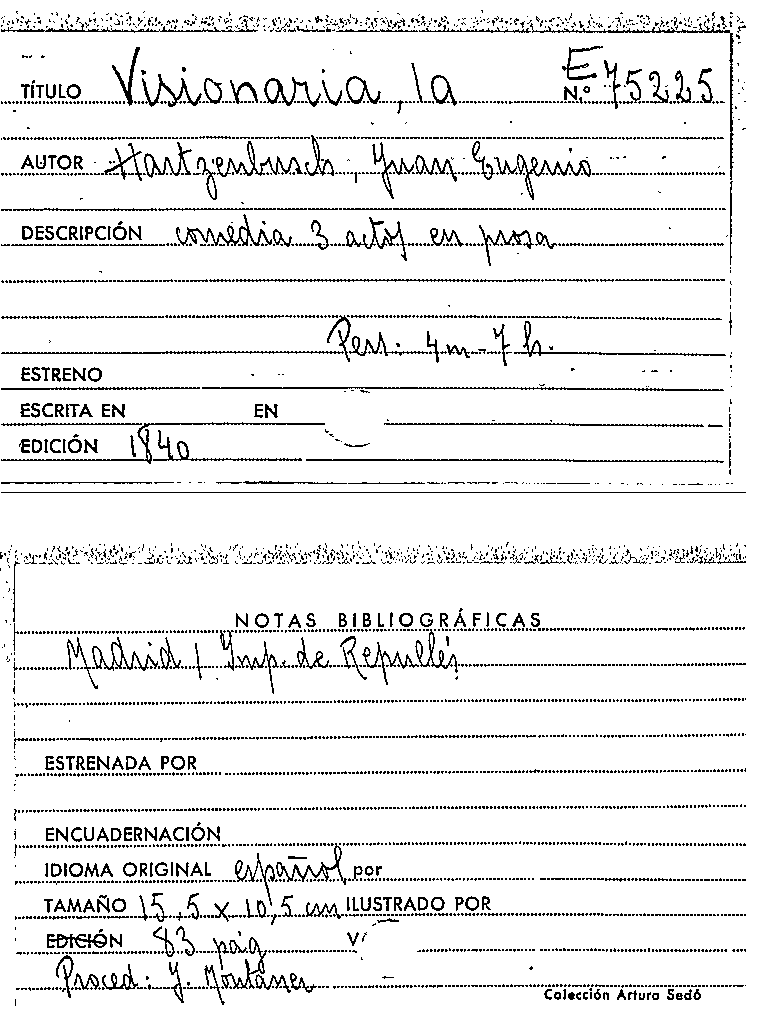 E
TÍTULO Visionaria, la N.º 75225
AUTOR Hartzenbusch, Juan Eugenio
DESCRIPCIÓN comedia 3 actos en prosa
Pers: 4m-7h.
ESTRENO
ESCRITA EN EN
EDICIÓN 1840
NOTAS BIBLIOGRÁFICAS
Madrid / Imp. de Repullés
ESTRENADA POR
ENCUADERNACIÓN
IDIOMA ORIGINAL español por
TAMAÑO 15,5 x 10,5 cm ILUSTRADO POR
EDICIÓN 83 pág V
Proced: J. Montaner
Colección Arturo Sedó